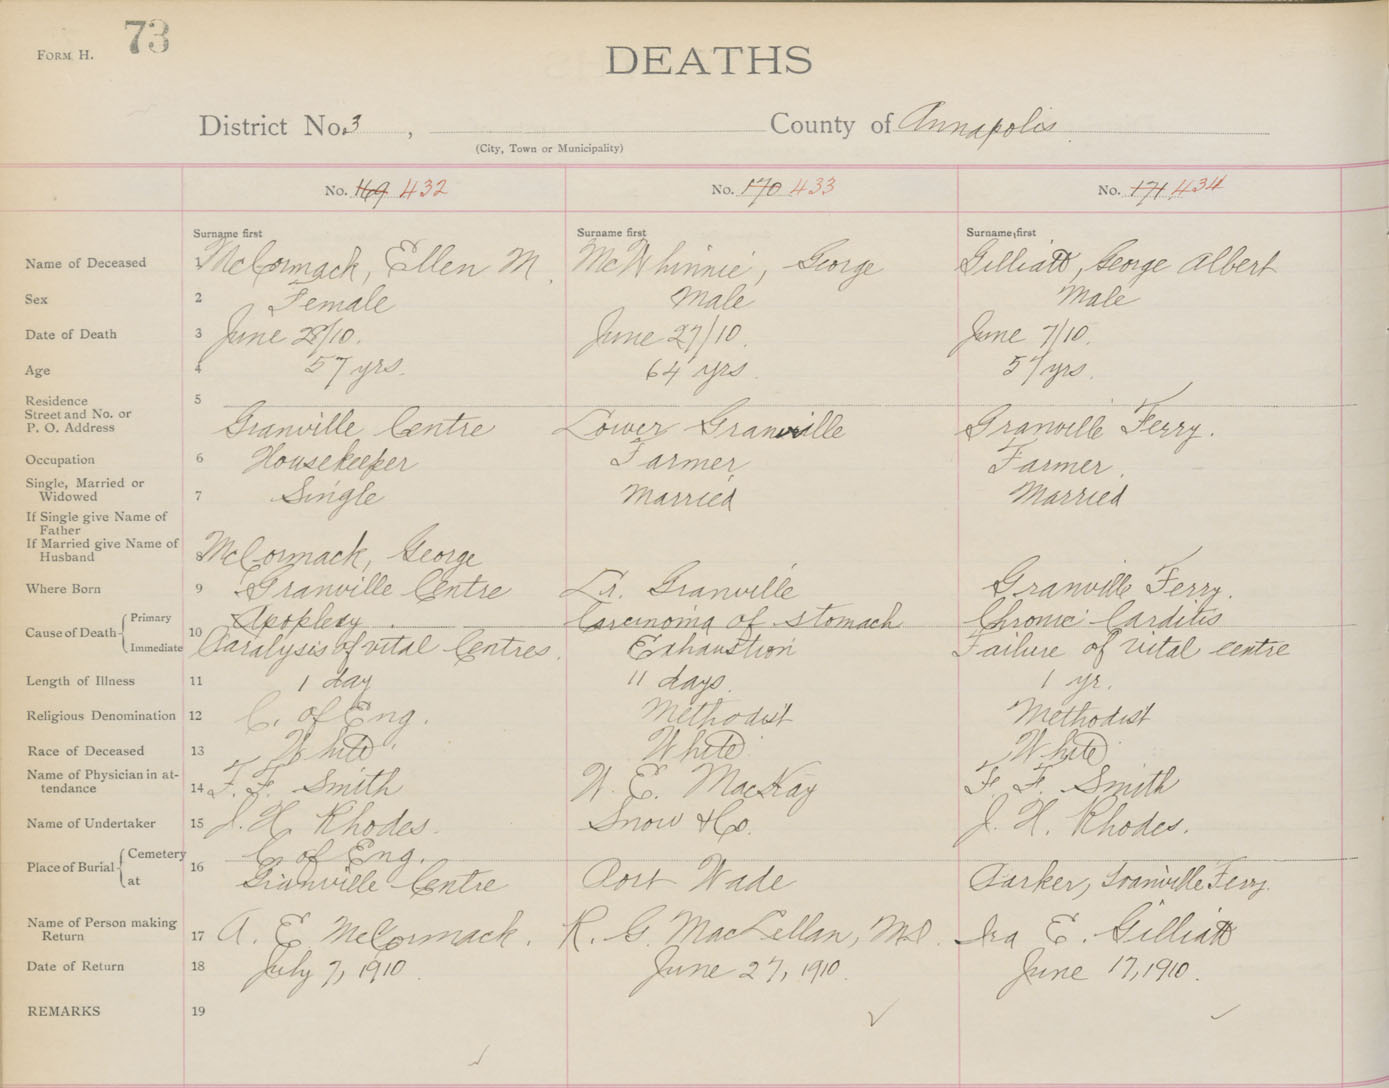 FORM H.
73
DEATHS
District No. 3, County of Annapolis
(City, Town or Municipality)
No. 169 432 No. 170 433 No. 171 434
Surname first Surname first Surname, first
Name of Deceased 1 McCormack, Ellen M. McWhinnie, George Gilliatt, George Albert
Sex 2 Female Male Male
Date of Death 3 June 28/10. June 27/10. June 7/10.
Age 4 57 yrs. 64 yrs. 57 yrs.
Residence 5
Street and No. or
P. O. Address Granville Centre Lower Granville Granville Ferry.
Occupation 6 Housekeeper Farmer Farmer.
Single, Married or
Widowed 7 Single Married Married
If Single give Name of
Father
If Married give Name of
Husband 8 McCormack, George
Where Born 9 Granville Centre Lr. Granville Granville Ferry.
Cause of Death 10 Primary Apoplexy. Carcinoma of stomach Chronic Carditis
Immediate Paralysis of vital Centres. Exhaustion Failure of vital centre
Length of Illness 11 1 day 11 days. 1 yr.
Religious Denomination 12 C. of Eng. Methodist Methodist
Race of Deceased 13 White White White
Name of Physician in at-
tendance 14 F. F. Smith W. E. MacKay F. F. Smith
Name of Undertaker 15 J. H. Rhodes. Snow & Co. J. H. Rhodes.
Place of Burial 16 Cemetery C. of Eng.
at Granville Centre Port Wade Parker, Granville Ferry.
Name of Person making
Return 17 A. E. McCormack. R. G. MacLellan, M.D. Ira E. Gilliatt
Date of Return 18 July 7, 1910. June 27, 1910. June 17, 1910.
REMARKS 19